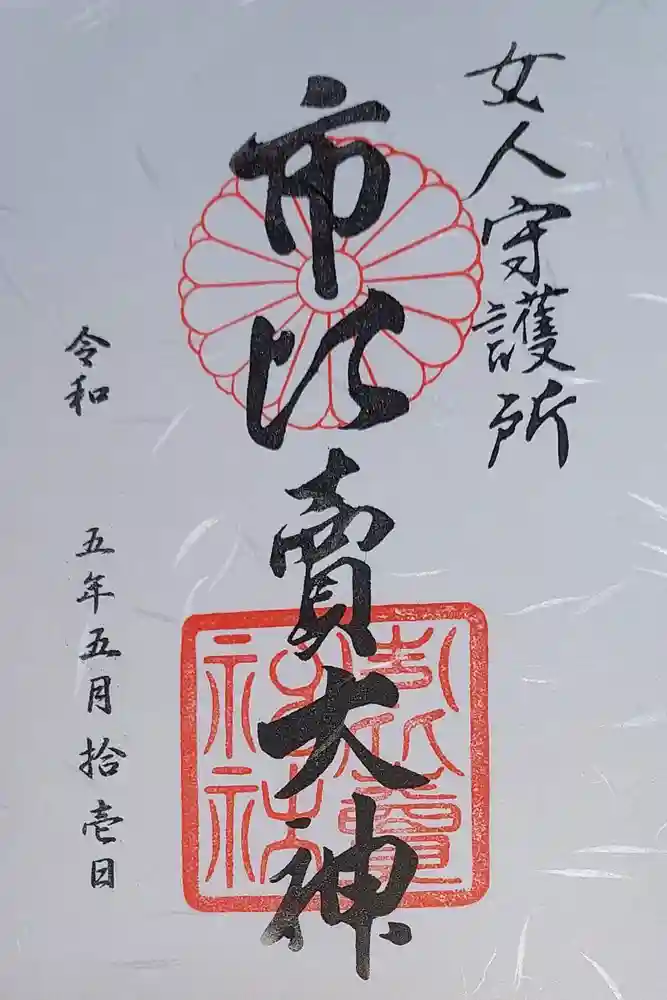 女人守護所
市比賣大神
市比賣神社
令和 五年五月拾壱日